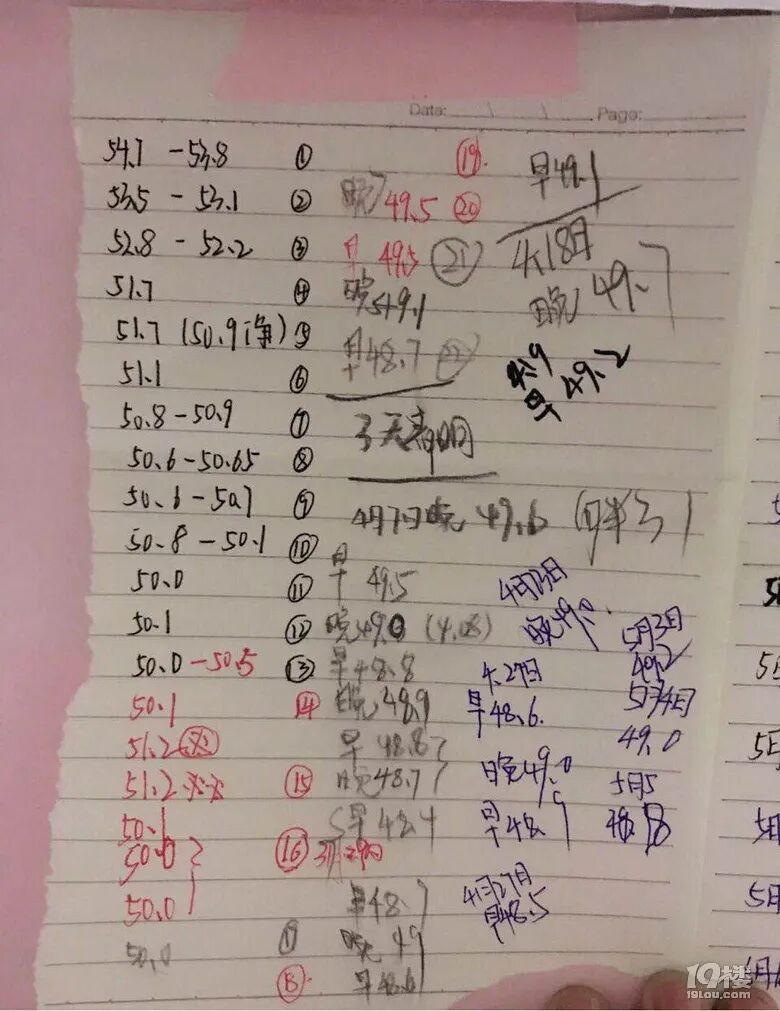 Date: \ \ Page:
54.7 -53.8 ①
53.5 - 53.1 ②
52.8 - 52.2 ③
51.7 ④
51.7 (50.9净) ⑤
51.1 ⑥
50.8-50.9 ⑦
50.6-50.65 ⑧
50.6-50.7 ⑨
50.8-50.1 ⑩
50.0 ⑪
50.1 ⑫
50.0-50.5 ⑬
50.1 ⑭
51.2
51.2 ⑮
50.1
50.0 ⑯
50.0
50.0
⑲
晚 49.5 ⑳
早 49.5 ㉑
晚 49.1
早 48.7 ㉒
3天
4月7日晚 49.6
早 49.5
晚 49.0 (4.08)
早 48.8
晚 48.9
早 48.8
晚 48.7
早 48.4
3月29日
早 48.7
晚 49
早 48.6
早 49.1
4.18日
晚 49.7
4.19
早 49.2
晚 49.0
4.27日
早 48.6
晚 49.0
早 48.9
4月27日
早 48.5
5月3日
49.2
5月4日
49.0
5月5
48.8
19楼
19lou.com